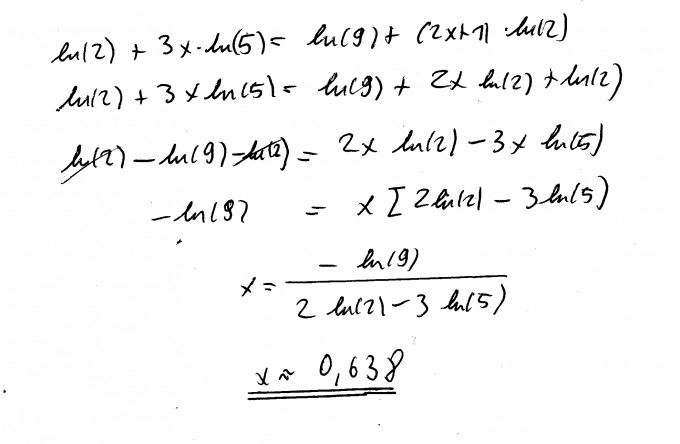 ln(2) + 3x·ln(5) = ln(9) + (2x+1)·ln(2)
ln(2) + 3x ln(5) = ln(9) + 2x ln(2) + ln(2)
ln(2) - ln(9) - ln(2) = 2x ln(2) - 3x ln(5)
- ln(9) = x [2 ln(2) - 3 ln(5)
x = - ln(9) / 2 ln(2) - 3 ln(5)
x ≈ 0,638